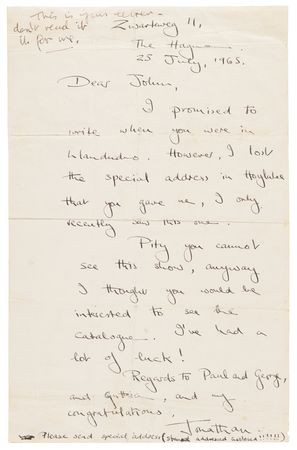 This is your letter
don't read it
it's for me.
Zwarteweg 11,
The Hague.
25 July, 1965.
Dear John,
I promised to
write when you were in
Llandudno. However, I lost
the special address in Hoylake
that you gave me, I only
recently saw this one.
Pity you cannot
see this show, anyway
I thought you would be
interested to see the
catalogue. I've had a
lot of luck!
Regards to Paul and George,
and, and my
congratulations,
Jonathan.
Please send special address (stamped addressed enclosed!!!!!!)